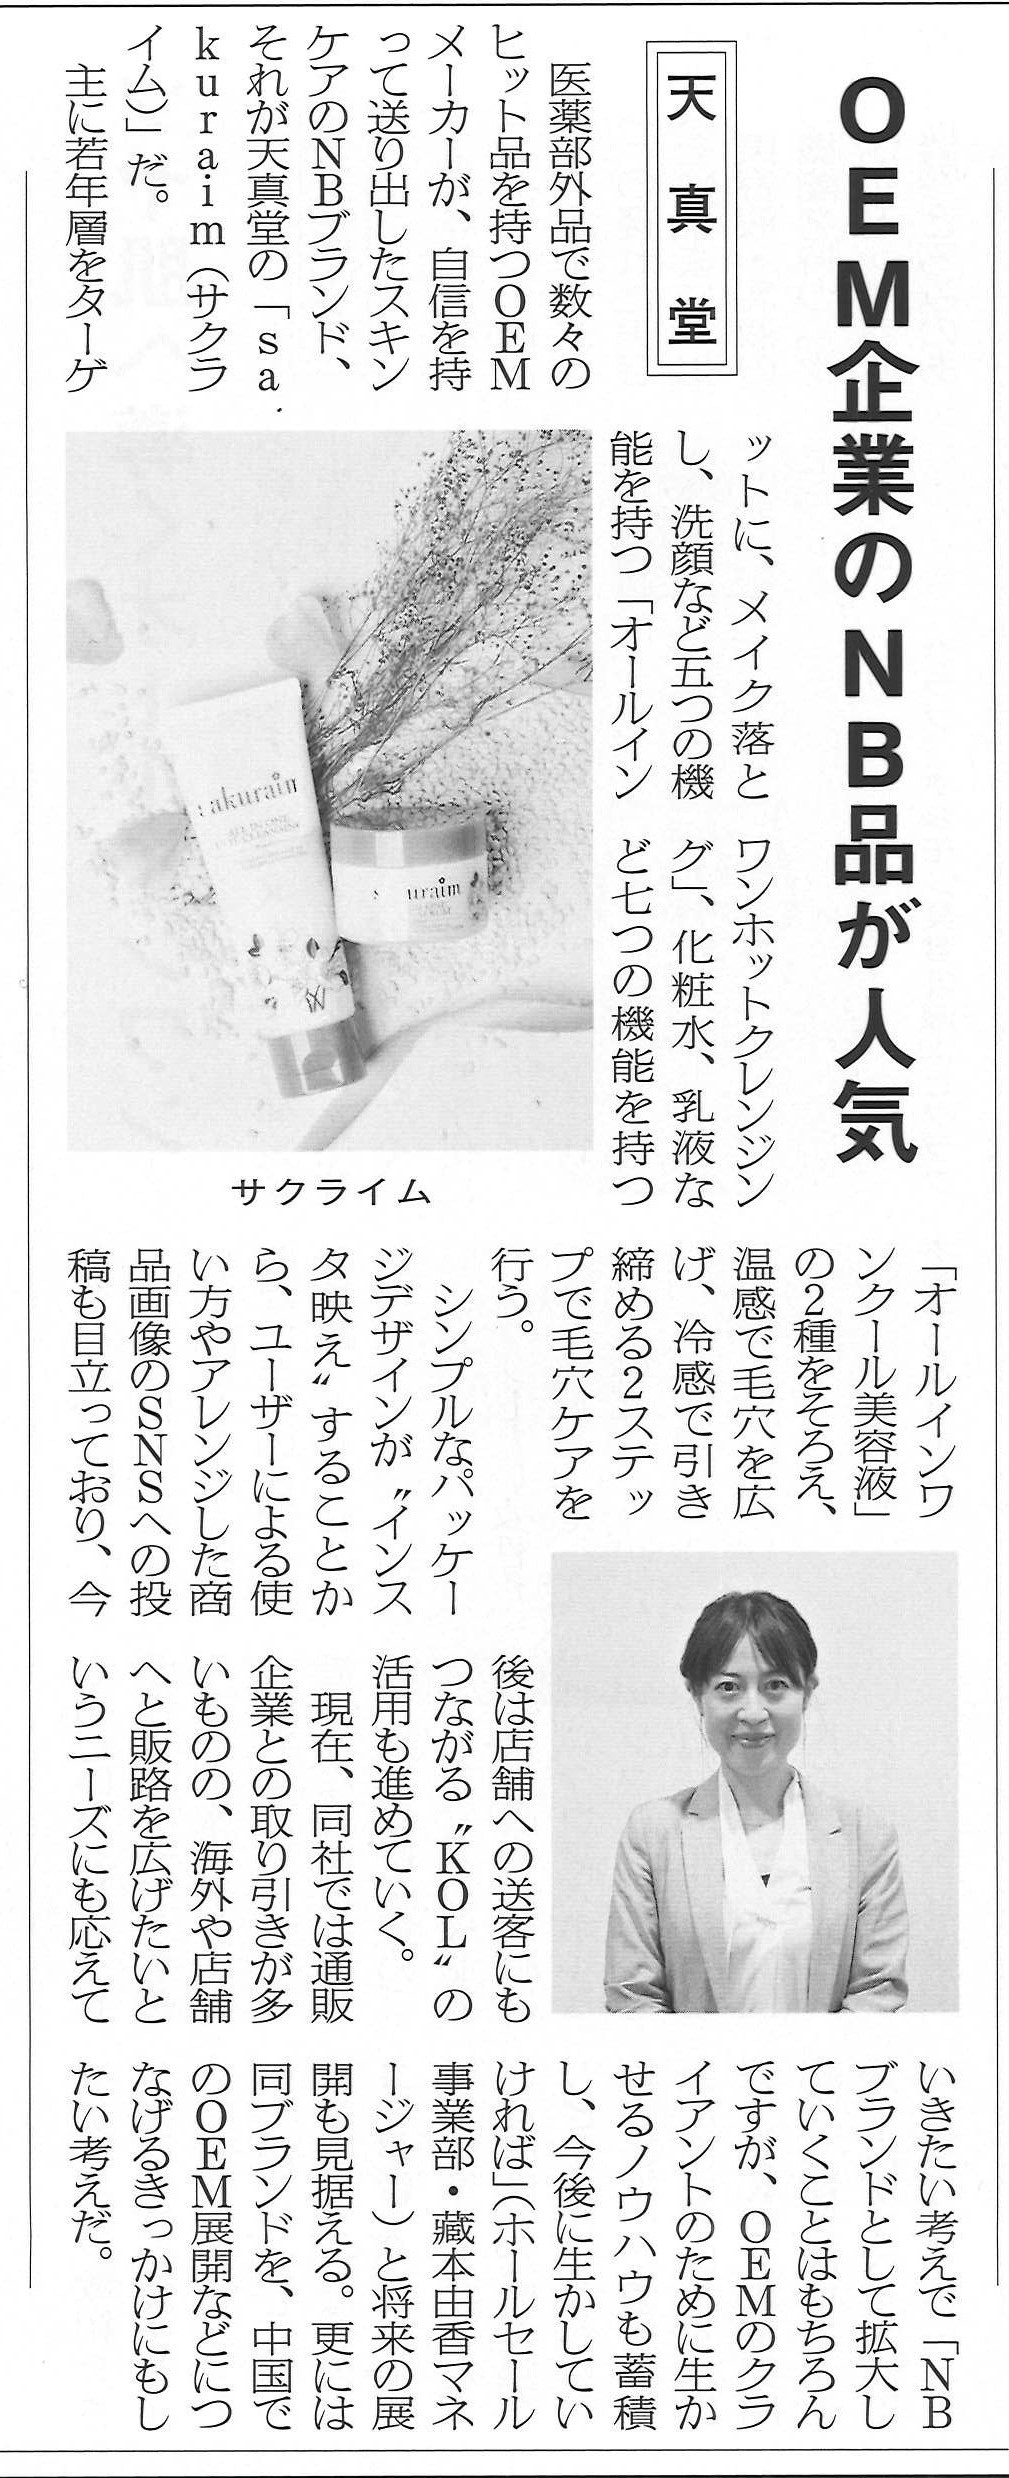 OEM企業のNB品が人気
天真堂
医薬部外品で数々の
ヒット品を持つOEM
メーカーが、自信を持
って送り出したスキン
ケアのNBブランド、
それが天真堂の「sa
kuraim（サクラ
イム）」だ。
主に若年層をターゲ
ットに、メイク落と
し、洗顔など五つの機
能を持つ「オールイン
ワンホットクレンジン
グ」、化粧水、乳液な
ど七つの機能を持つ
サクライム
「オールインワ
ンクール美容液」
の2種をそろえ、
温感で毛穴を広
げ、冷感で引き
締める2ステッ
プで毛穴ケアを
行う。
シンプルなパッケー
ジデザインが〝インス
タ映え〟することか
ら、ユーザーによる使
い方やアレンジした商
品画像のSNSへの投
稿も目立っており、今
後は店舗への送客にも
つながる〝KOL〟の
活用も進めていく。
現在、同社では通販
企業との取り引きが多
いものの、海外や店舗
へと販路を広げたいと
いうニーズにも応えて
いきたい考えで「NB
ブランドとして拡大し
ていくことはもちろん
ですが、OEMのクラ
イアントのために生か
せるノウハウも蓄積
し、今後に生かしてい
ければ」（ホールセール
事業部・藏本由香マネ
ージャー）と将来の展
開も見据える。更には
同ブランドを、中国で
のOEM展開などにつ
なげるきっかけにもし
たい考えだ。